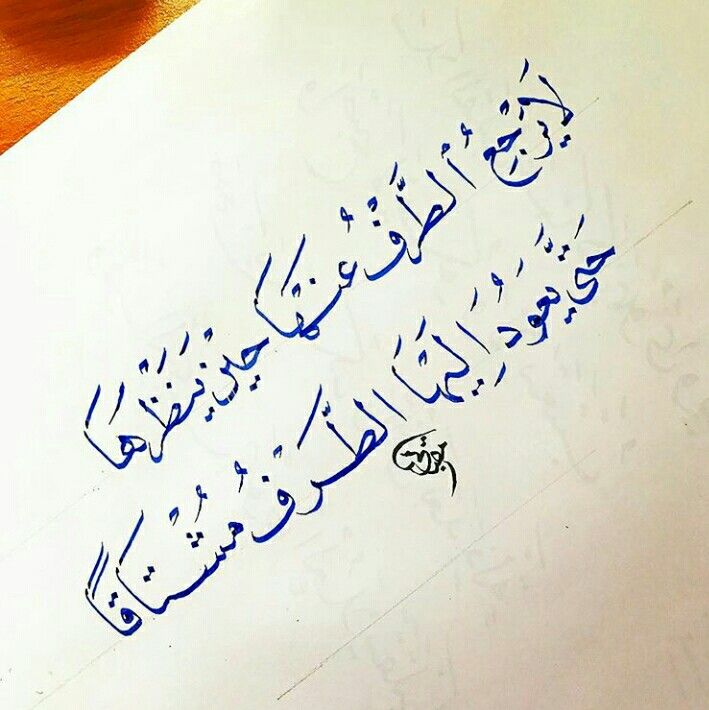 لَا يَرْجِعُ ٱلطَّرْفُ عَنْهَا حِيْنَ يَنْظُرُهَا
حَتَّى يَعُودَ إِلَيْهَا الطَّرْفُ مُشْتَاقًا